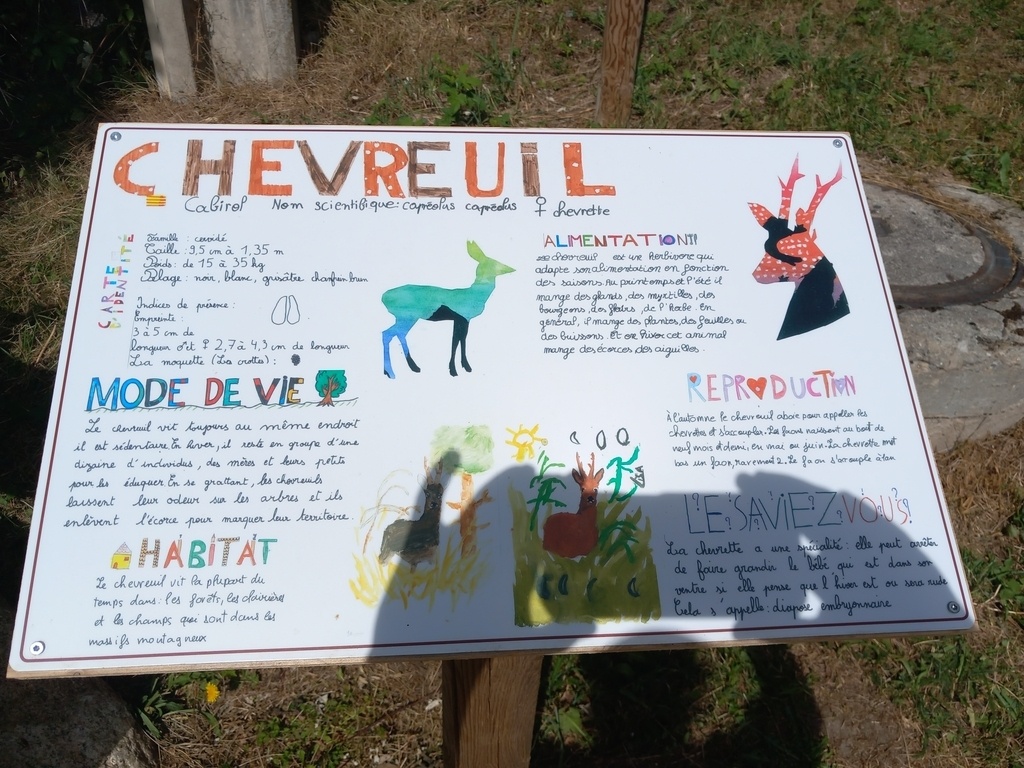 CHEVREUIL
Cabirol Nom scientifique: capréolus capréolus ♀ chevrette
CARTE D'IDENTITÉ
Famille : cervidé
Taille : 9,5 cm à 1,35 m
Poids : de 15 à 35 kg
Pelage : noir, blanc, grisâtre brun
Indices de présence :
Empreinte :
3 à 5 cm de
longueur et 2,7 à 4,3 cm de longueur
La moquette (la crottes) :
ALIMENTATION
Le chevreuil est une herbivore qui
adapte son alimentation en fonction
des saisons. Au printemps et l'été il
mange des glands, des myrtilles, des
bourgeons, des fleurs, de l'herbe. En
général, il mange des plantes, des feuilles ou
des buissons. Et en hiver cet animal
mange des écorces des aiguilles.
MODE DE VIE
Le chevreuil vit toujours au même endroit
il est sédentaire. En hiver, il reste en groupe d'une
dizaine d'individus, des mères et leurs petits
pour les éduquer. En se grattant, les chevreuils
laissent leur odeur sur les arbres et ils
enlèvent l'écorce pour marquer leur territoire.
HABITAT
Le chevreuil vit la plupart du
temps dans : les forêts, les clairières
et les champs qui sont dans les
massifs montagneux
REPRODUCTION
À l'automne le chevreuil aboie pour appeller les
chevrettes et s'accoupler. Les faons naissent au bout de
neuf mois et demi, en mai ou juin. La chevrette met
bas un faon, rarement 2. Le faon s'accouple à 1 an
LE SAVIEZ VOUS?
La chevrette a une spécialité : elle peut arrêter
de faire grandir le bébé qui est dans son
ventre si elle pense que l'hiver est ou sera rude
Cela s'appelle : diapose embryonnaire